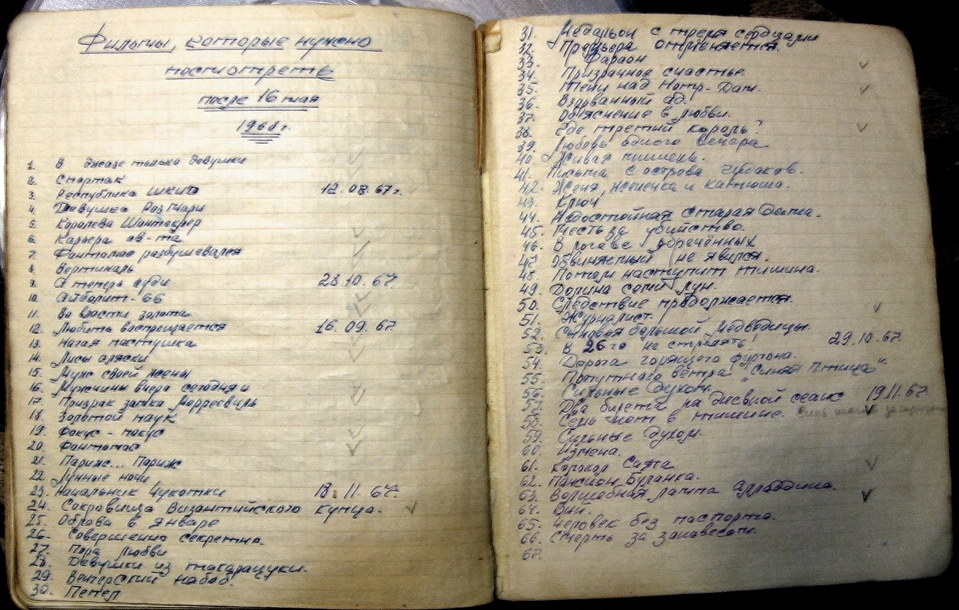 Фильмы, которые нужно
посмотреть
после 16 мая
1968г.
1. В джазе только девушки
2. Спартак
3. Республика Шкид 12.08.67г.
4. Девушка Розмари
5. Королева Шантеклер
6. Карьера
7. Фантомас разбушевался
8. Вертикаль
9. А теперь суди 23.10.67
10. Айболит-66
11. Во власти золота
12. Любить воспрещается 16.09.67.
13. Нагая пастушка
14. Лисы аляски
15. Муж своей жены
16. Мужчины вчера сегодня и
17. Призрак замка Морресвиль
18. Золотой паук
19. Фокус-покус
20. Фантомас
21. Париж... Париж
22. Лунные ночи
23. Начальник Чукотки 18.11.67.
24. Сокровища Византийского купца.
25. Облава в январе
26. Совершенно секретно
27. Пора любви
28. Девушки из такарацуки.
29. Венгерский набоб.
30. Пепел
31. Медальон с тремя сердцами
32. Премьера отменяется.
33. Фараон
34. Призрачное счастье.
35. Тени над Нотр-Дам.
36. Взорванный ад.
37. Объяснение в любви.
38. Где третий король?
39. Любовь одного вечера
40. Живая мишень.
41. Письма с острова чудаков.
42. Женя, Женечка и Катюша.
43. Ключ
44. Недостойная старая дама.
45. Месть за убийство.
46. В логове обречённых
47. Обвиняемый не явился.
48. Потом наступит тишина.
49. Долина семи лун.
50. Следствие продолжается.
51. Журналист.
52. Сыновья большой медведицы.
53. В 26го не стрелять! 29.10.67.
54. Дорога горящего фургона.
55. Попутного ветра "Синяя птица"
56. Сильные духом.
57. Два билета на дневной сеанс 19.11.67
58. Семь нот в тишине.
59. Сильные духом.
60. Измена.
61. Каракал
62. Пансион Буланка.
63. Волшебная лампа алладина.
64. Вий.
65. Человек без паспорта.
66. Смерть за занавесом.
67.